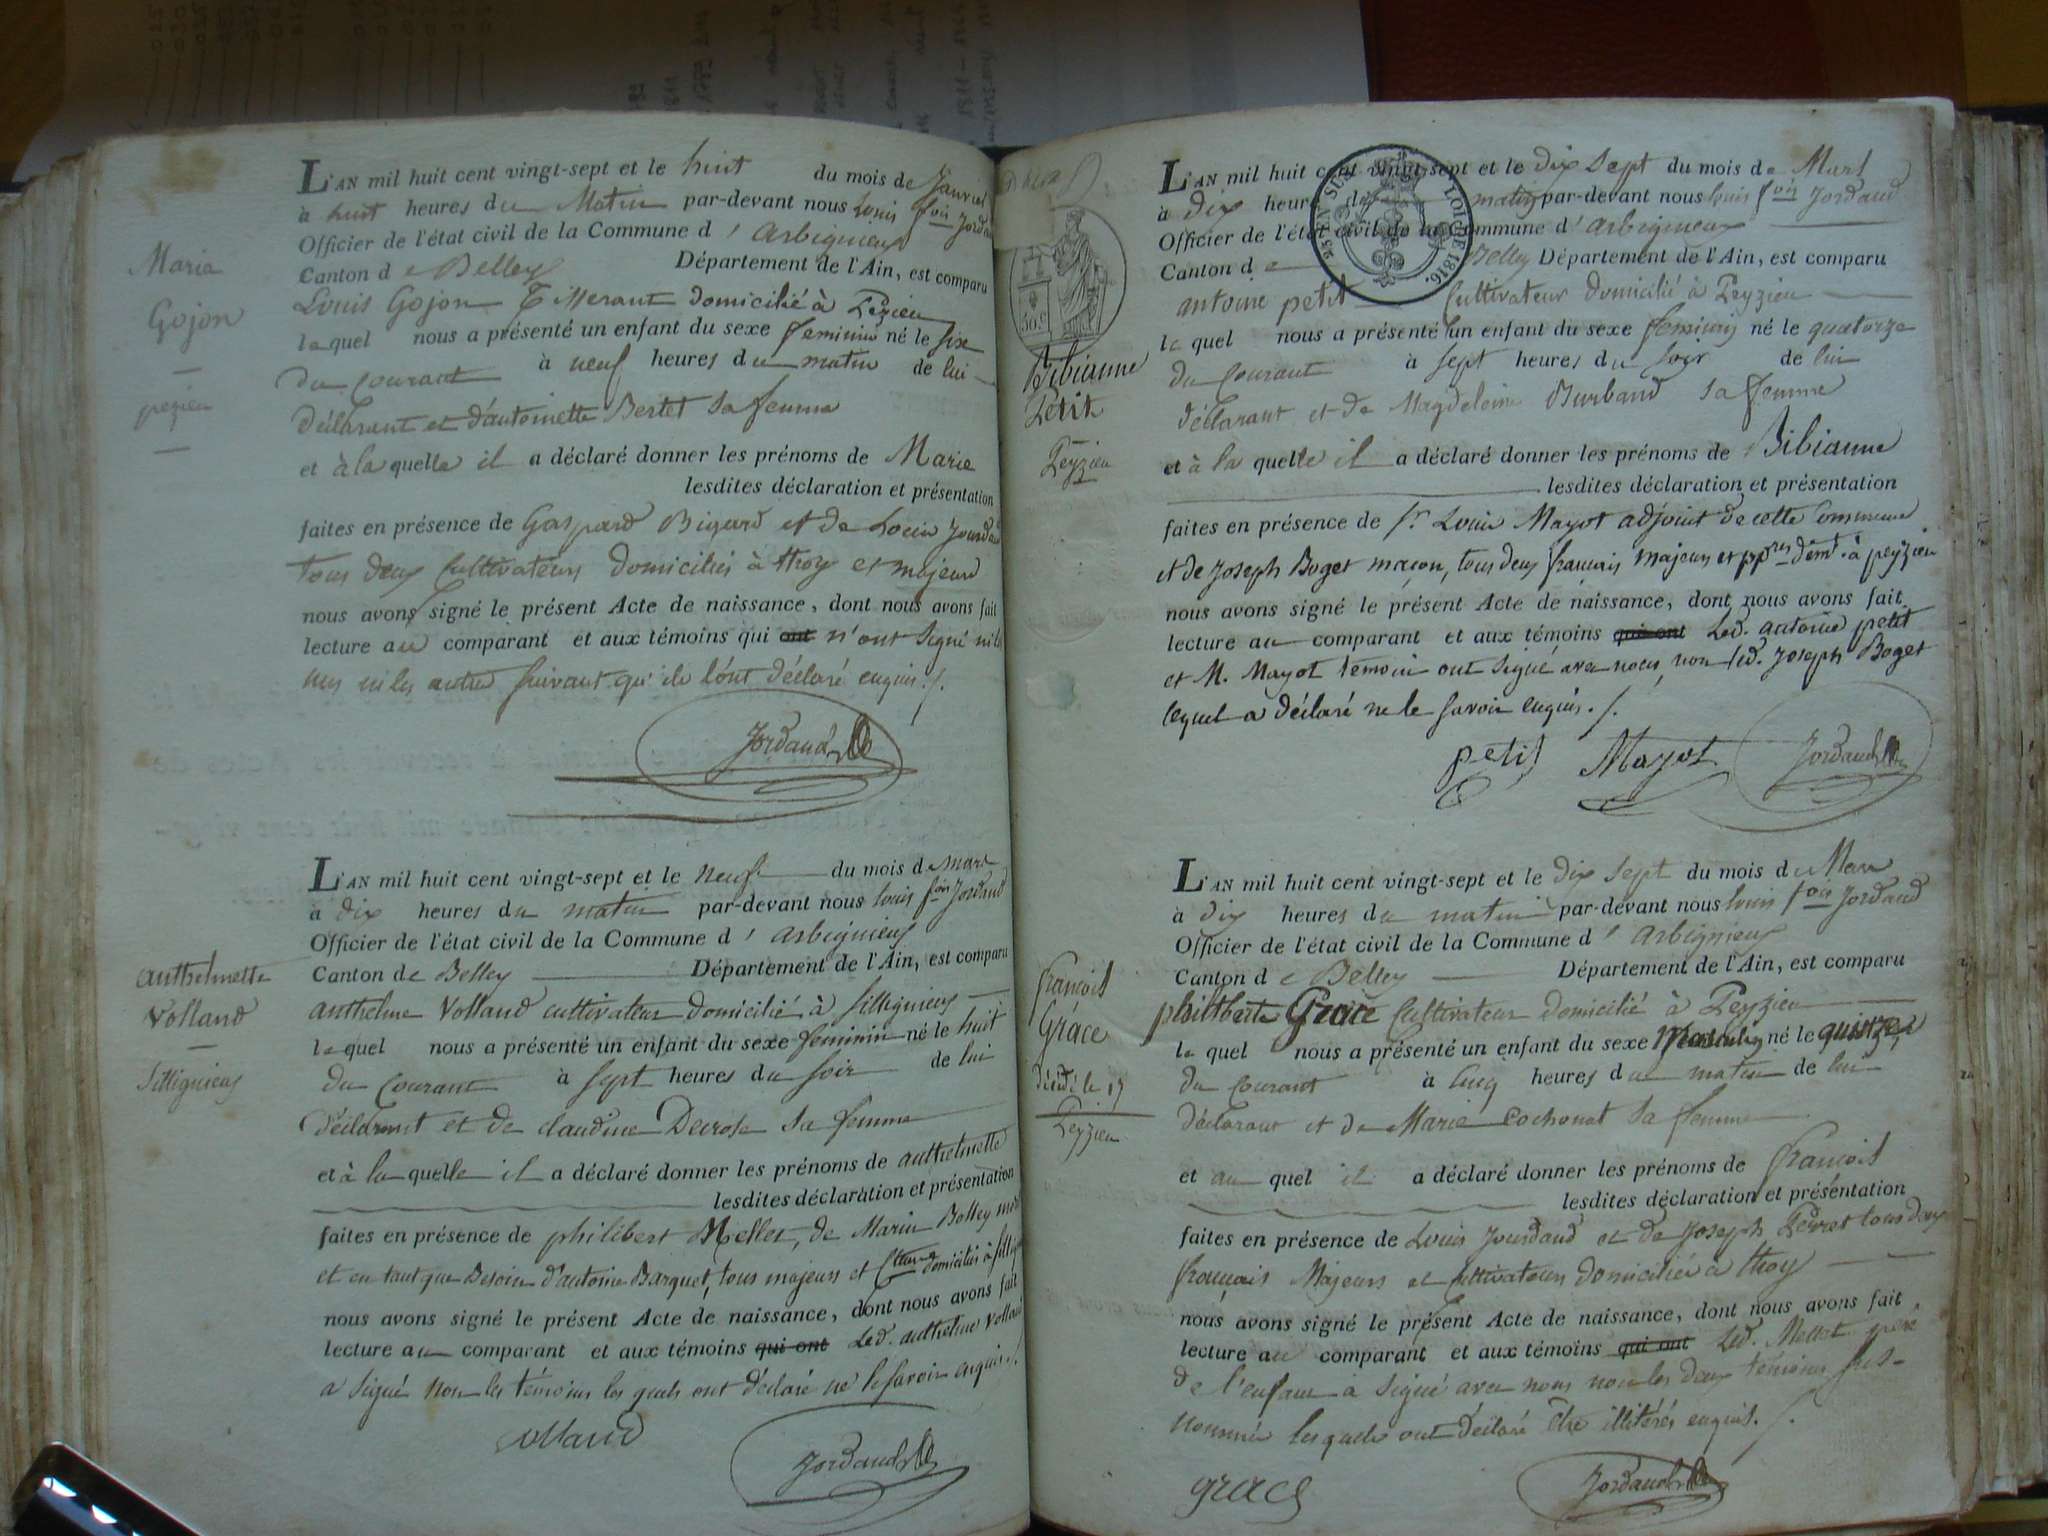 L'AN mil huit cent vingt-sept et le huit du mois de Janvier
à huit heures du Matin par-devant nous Louis fois Jordaud
Officier de l'état civil de la Commune d'arbignieux
Canton de Belley Département de l'Ain, est comparu
Louis Gojon Tisserant domicilié à Pezieu
lequel nous a présenté un enfant du sexe feminin né le six
du Courant à neuf heures du matin de lui
déclarant et d'antoinette Bertet sa femme
et à la quelle il a déclaré donner les prénoms de Marie
lesdites déclaration et présentation
faites en présence de Gaspard Bigard et de Louis Jourdaud
tous deux Cultivateurs domiciliés à thoy et majeurs
nous avons signé le présent Acte de naissance, dont nous avons fait
lecture au comparant et aux témoins qui ont n'ont signé ni les
uns ni les autres suivant qu'ils l'ont déclaré enquis./.
Jordaud
Maria
Gojon
pezieu
L'AN mil huit cent vingt-sept et le neuf du mois de mars
à dix heures du matin par-devant nous louis fois Jordaud
Officier de l'état civil de la Commune d'arbignieux
Canton de Belley Département de l'Ain, est comparu
anthelme Volland cultivateur domicilié à sillignieux
lequel nous a présenté un enfant du sexe feminin né le huit
du Courant à sept heures du soir de lui
déclarant et de claudine Decrose sa femme
et à la quelle il a déclaré donner les prénoms de anthelmette
lesdites déclaration et présentation
faites en présence de philibert Mellet, de Marin Bolley
et en tant que Besoin d'antoine Barquet, tous majeurs et domiciliés à
nous avons signé le présent Acte de naissance, dont nous avons fait
lecture au comparant et aux témoins qui ont Led. anthelme Volland
a signé non les témoins les quels ont déclaré ne le savoir enquis./.
volland
Jordaud
anthelmette
Volland
Sillignieux
L'AN mil huit cent vingt-sept et le dix sept du mois de Mars
à dix heures du matin par-devant nous louis fois Jordaud
Officier de l'état civil de la Commune d'arbignieux
Canton de Belley Département de l'Ain, est comparu
antoine petit Cultivateur domicilié à Peyzieu
le quel nous a présenté un enfant du sexe feminin né le quatorze
du Courant à sept heures du soir de lui
déclarant et de Magdeleine Burband sa femme
et à la quelle il a déclaré donner les prénoms de Bibianne
lesdites déclaration et présentation
faites en présence de Sr Louis Mayot adjoint de cette Commune
et de Joseph Boget maçon, tous deux français majeurs et pp.res demt. à peyzieu
nous avons signé le présent Acte de naissance, dont nous avons fait
lecture au comparant et aux témoins qui ont Led. antoine petit
et M. Mayot témoin ont signé avec nous, non led. Joseph Boget
lequel a déclaré ne le savoir enquis./.
petit Mayot Jordaud
50 c
LOI DE 1816.
Bibianne
Petit
Peyzieu
L'AN mil huit cent vingt-sept et le dix sept du mois de Mars
à dix heures du matin par-devant nous louis fois Jordaud
Officier de l'état civil de la Commune d'arbignieux
Canton de Belley Département de l'Ain, est comparu
philibert Grace Cultivateur domicilié à Peyzieu
le quel nous a présenté un enfant du sexe Masculin né le quinze
du Courant à cinq heures du matin de lui
déclarant et de Marie cochonat sa femme
et au quel il a déclaré donner les prénoms de françois
lesdites déclaration et présentation
faites en présence de Louis Jourdaud et de Joseph Perret tous deux
français Majeurs et Cultivateurs domiciliés à thoy
nous avons signé le présent Acte de naissance, dont nous avons fait
lecture au comparant et aux témoins qui ont Led. Mellet père
de l'enfant a signé avec nous non les deux témoins sus-
nommés lesquels ont déclaré être illitérés enquis./.
grace Jordaud
françois
Grace
décédé le 17
Peyzieu